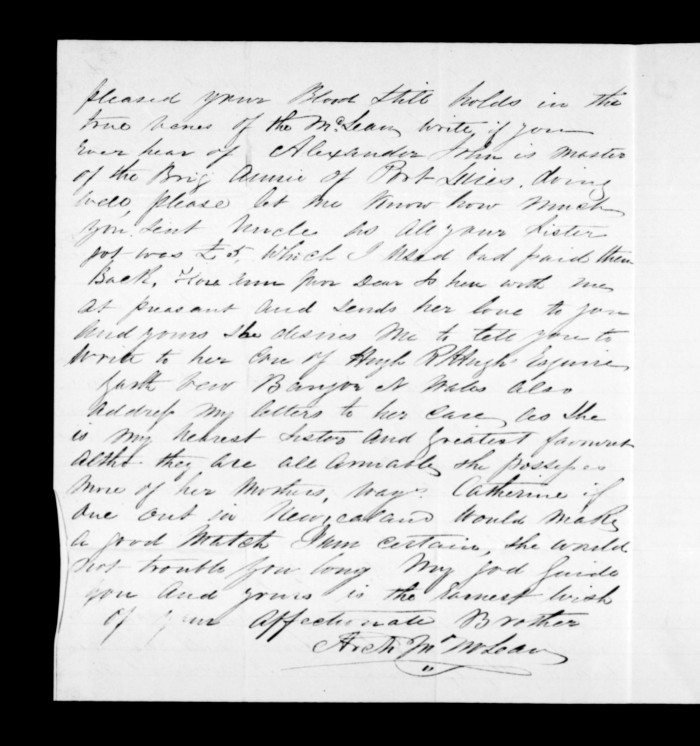 pleased your Blood Still holds in the
true venes of the McLean, write if you
Ever hear of Alexander John is master
of the Brig Annie of Port Luies. doing
well, please let me know how much
you Sent Uncle as all your Sister
got was £5, which I used had paid them
Back. Flora our Dear Is hen with me
at preasant and sends her love to you
and yours She desires me to tell you to
Write to her Care of Hugh Esquire
Garth View Bangor N Wales also
address my letters to her care, as She
is my nearest Sister and greatest favouret
altho they are all amiable, she possesses
more of her Mothers, ways. Catherine if
one out in New Zealand would make
a good Match I am certain, She would
not trouble you long May god Guide
you and yours is the Earnest wish
of your affectionate Brother
Archd McLean